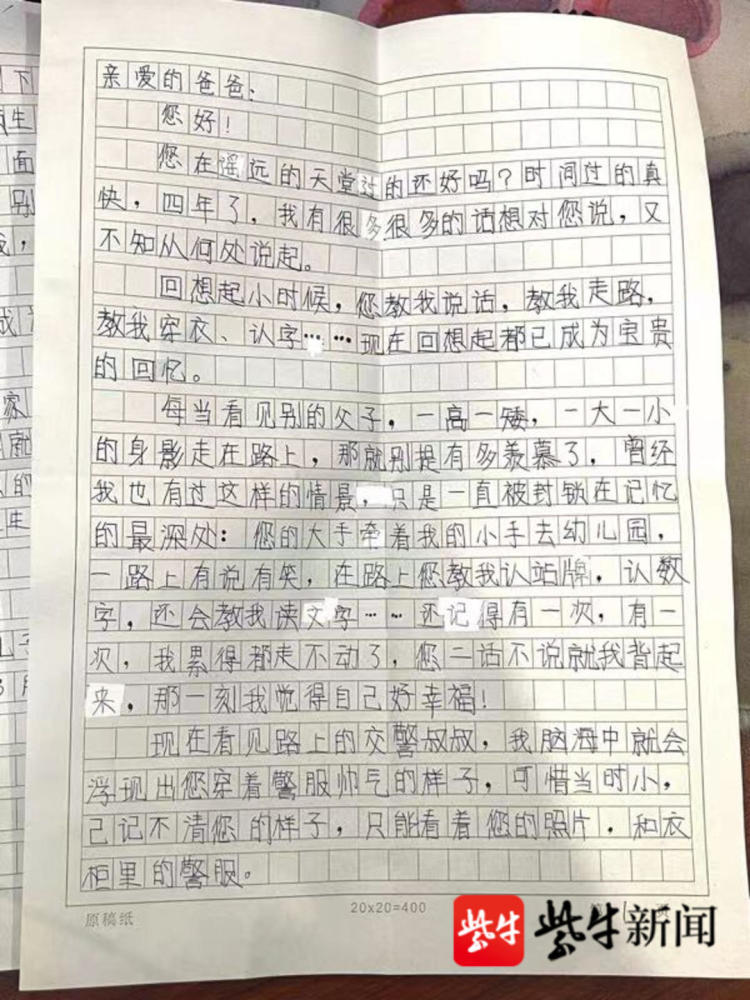 亲爱的爸爸：
您好！
您在遥远的天堂过的还好吗？时间过的真
快，四年了，我有很多很多的话想对您说，又
不知从何处说起。
回想起小时候，您教我说话，教我走路，
教我穿衣、认字……现在回想起都已成为宝贵
的回忆。
每当看见别的父子，一高一矮，一大一小
的身影走在路上，那就别提有多羡慕了，曾经
我也有过这样的情景，只是一直被封锁在记忆
的最深处：您的大手牵着我的小手去幼儿园，
一路上有说有笑，在路上您教我认站牌，认数
字，还会教我读文字……还记得有一次，有一
次，我累得都走不动了，您二话不说就我背起
来，那一刻我觉得自己好幸福！
现在看见路上的交警叔叔，我脑海中就会
浮现出您穿着警服帅气的样子，可惜当时小，
己记不清您的样子，只能看着您的照片，和衣
柜里的警服。
原稿纸
20x20=400
页
紫牛
紫牛新闻
下
生
面
别
，
家
就
的
生